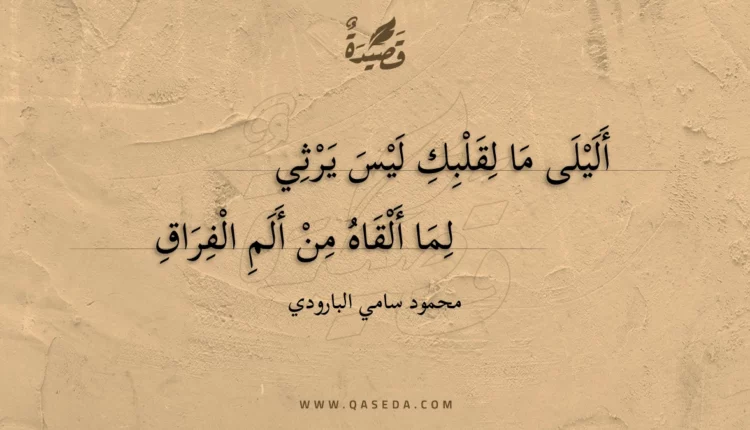 قَصِيدَةٌ
أَلَيْلَى مَا لِقَلْبِكِ لَيْسَ يَرْثِي
لِمَا أَلْقَاهُ مِنْ أَلَمِ الْفِرَاقِ
محمود سامي البارودي
WWW.QASEDA.COM